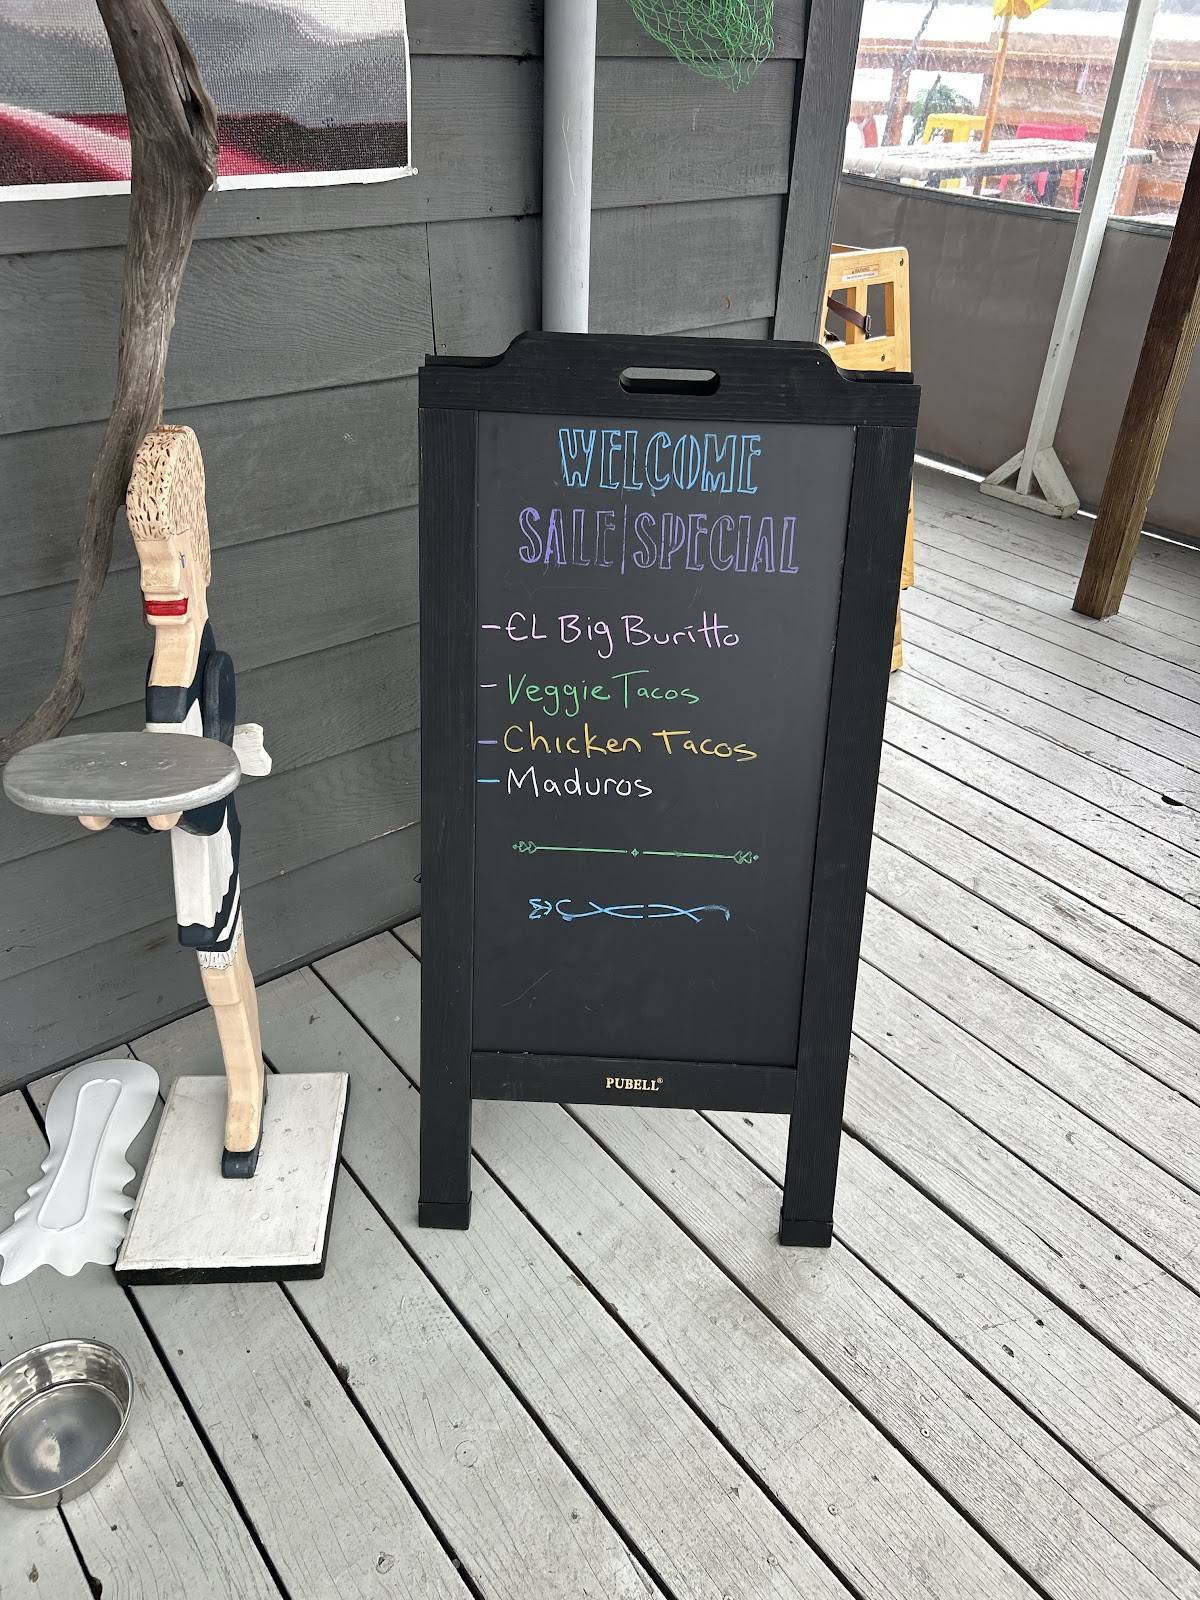 WELCOME
SALE|SPECIAL
- EL Big Buritto
- Veggie Tacos
- Chicken Tacos
- Maduros
PUBELL®